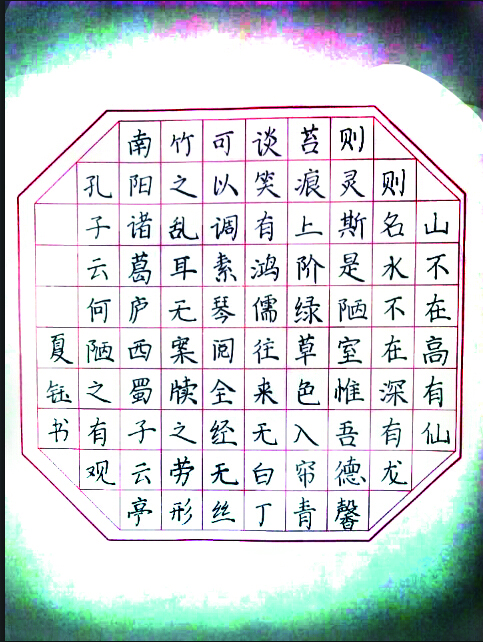 山不在高有仙
则名水不在深有龙
则灵斯是陋室惟吾德馨
苔痕上阶绿草色入帘青
谈笑有鸿儒往来无白丁
可以调素琴阅全经无丝
竹之乱耳无案牍之劳形
南阳诸葛庐西蜀子云亭
孔子云何陋之有观
夏钰书